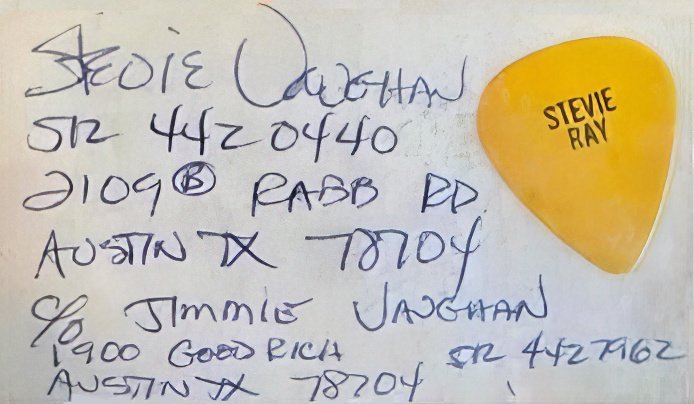 STEVIE VAUGHAN
512 442 0440
2109 B RABB RD.
AUSTIN TX 78704
c/o JIMMIE VAUGHAN
1900 GOODRICH 512 4427962
AUSTIN TX 78704
STEVIE
RAY